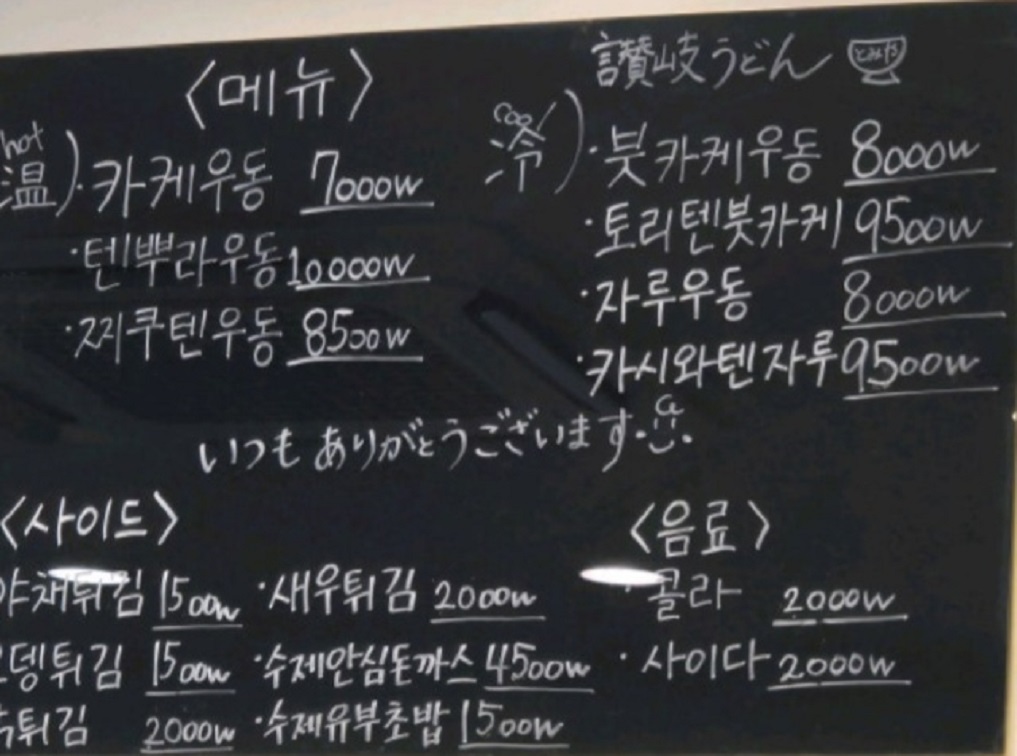 〈메뉴〉
讃岐うどん
hot 温) ·카케우동 7000W
·텐뿌라우동 10000W
·찌쿠텐우동 8500W
cool 冷) ·붓카케우동 8000W
·토리텐붓카케 9500W
·자루우동 8000W
·카시와텐자루 9500W
いつもありがとうございます
〈사이드〉
야채튀김 1500W
오뎅튀김 1500W
튀김 2000W
·새우튀김 2000W
·수제안심돈까스 4500W
·수제유부초밥 1500W
〈음료〉
·콜라 2000W
·사이다 2000W